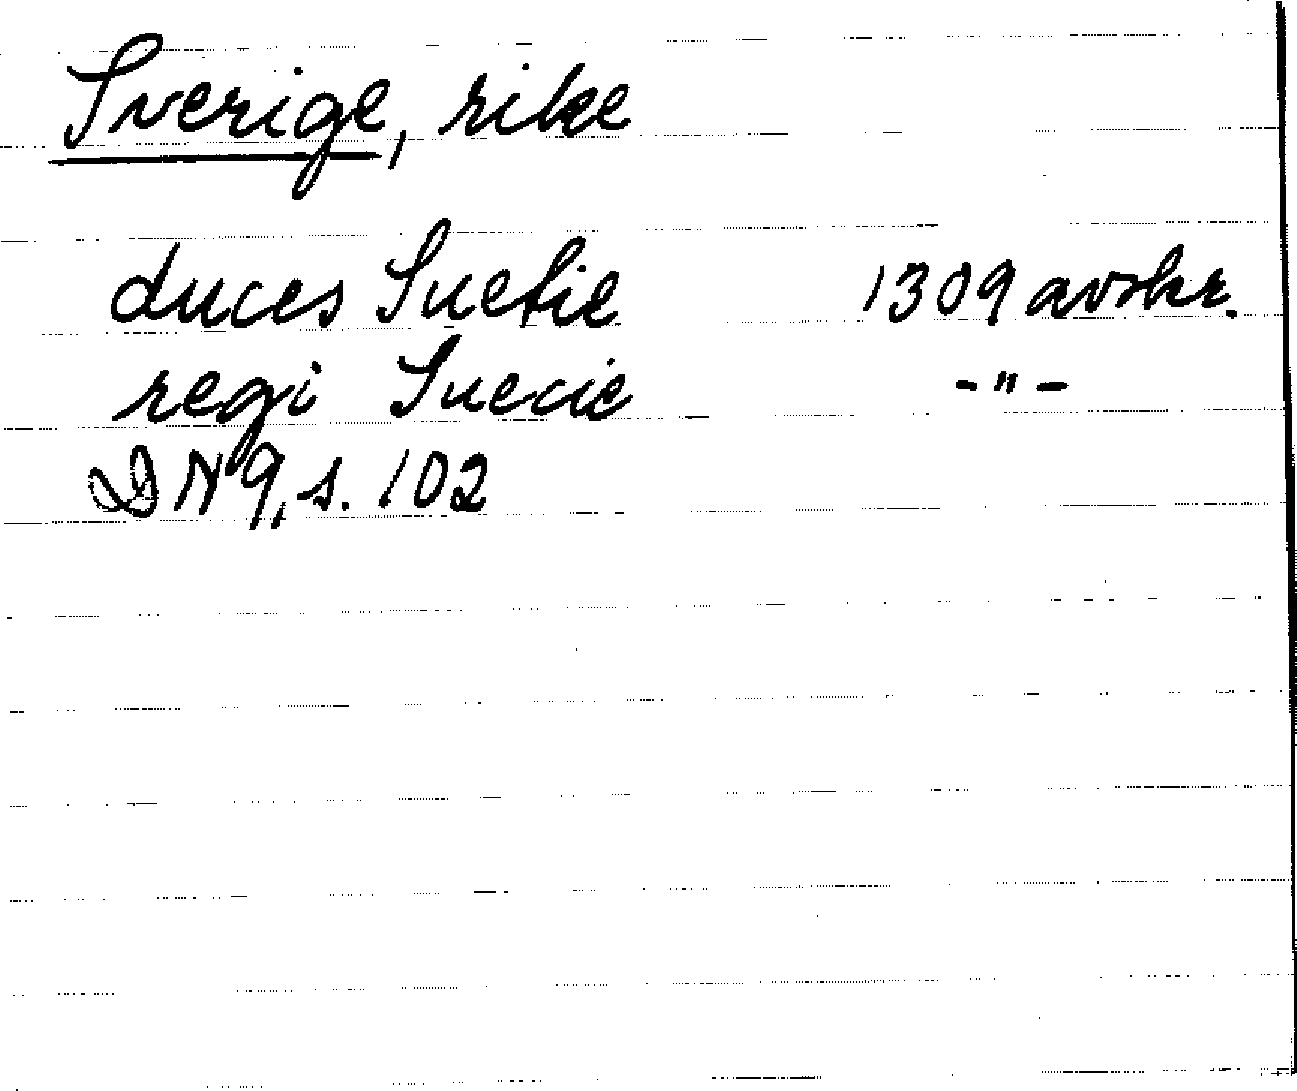 Sverige, rike
duces Suetie 1309 avskr.
regi Suecie -"-
DN 9, s. 102